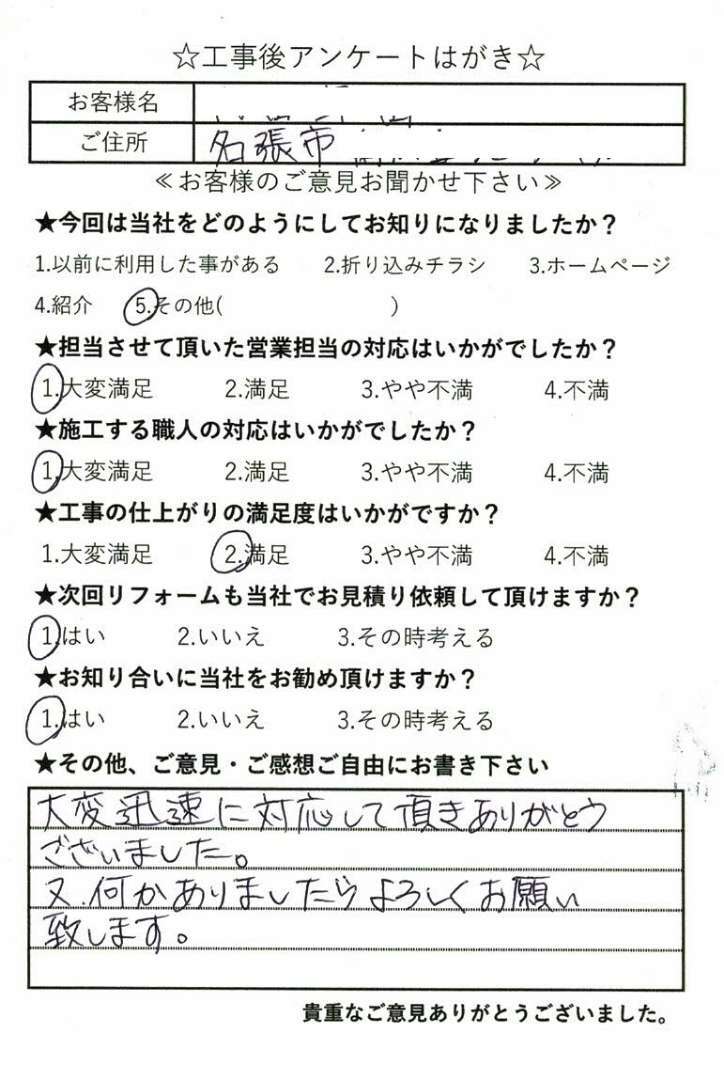 ☆工事後アンケートはがき☆
お客様名
ご住所 名張市
≪お客様のご意見お聞かせ下さい≫
★今回は当社をどのようにしてお知りになりましたか？
1.以前に利用した事がある 2.折り込みチラシ 3.ホームページ
4.紹介 5.その他( )
★担当させて頂いた営業担当の対応はいかがでしたか？
1.大変満足 2.満足 3.やや不満 4.不満
★施工する職人の対応はいかがでしたか？
1.大変満足 2.満足 3.やや不満 4.不満
★工事の仕上がりの満足度はいかがですか？
1.大変満足 2.満足 3.やや不満 4.不満
★次回リフォームも当社でお見積り依頼して頂けますか？
1.はい 2.いいえ 3.その時考える
★お知り合いに当社をお勧め頂けますか？
1.はい 2.いいえ 3.その時考える
★その他、ご意見・ご感想ご自由にお書き下さい
大変迅速に対応して頂きありがとう
ございました。
又、何かありましたらよろしくお願い
致します。
貴重なご意見ありがとうございました。